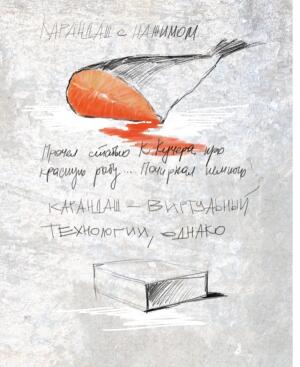 КАРАНДАШ с НАЖИМОМ.
Прочел статью К. Кучера про
красную рыбу... Почиркал немного
КАРАНДАШ – ВИРТУАЛЬНЫЙ
ТЕХНОЛОГИИ, ОДНАКО